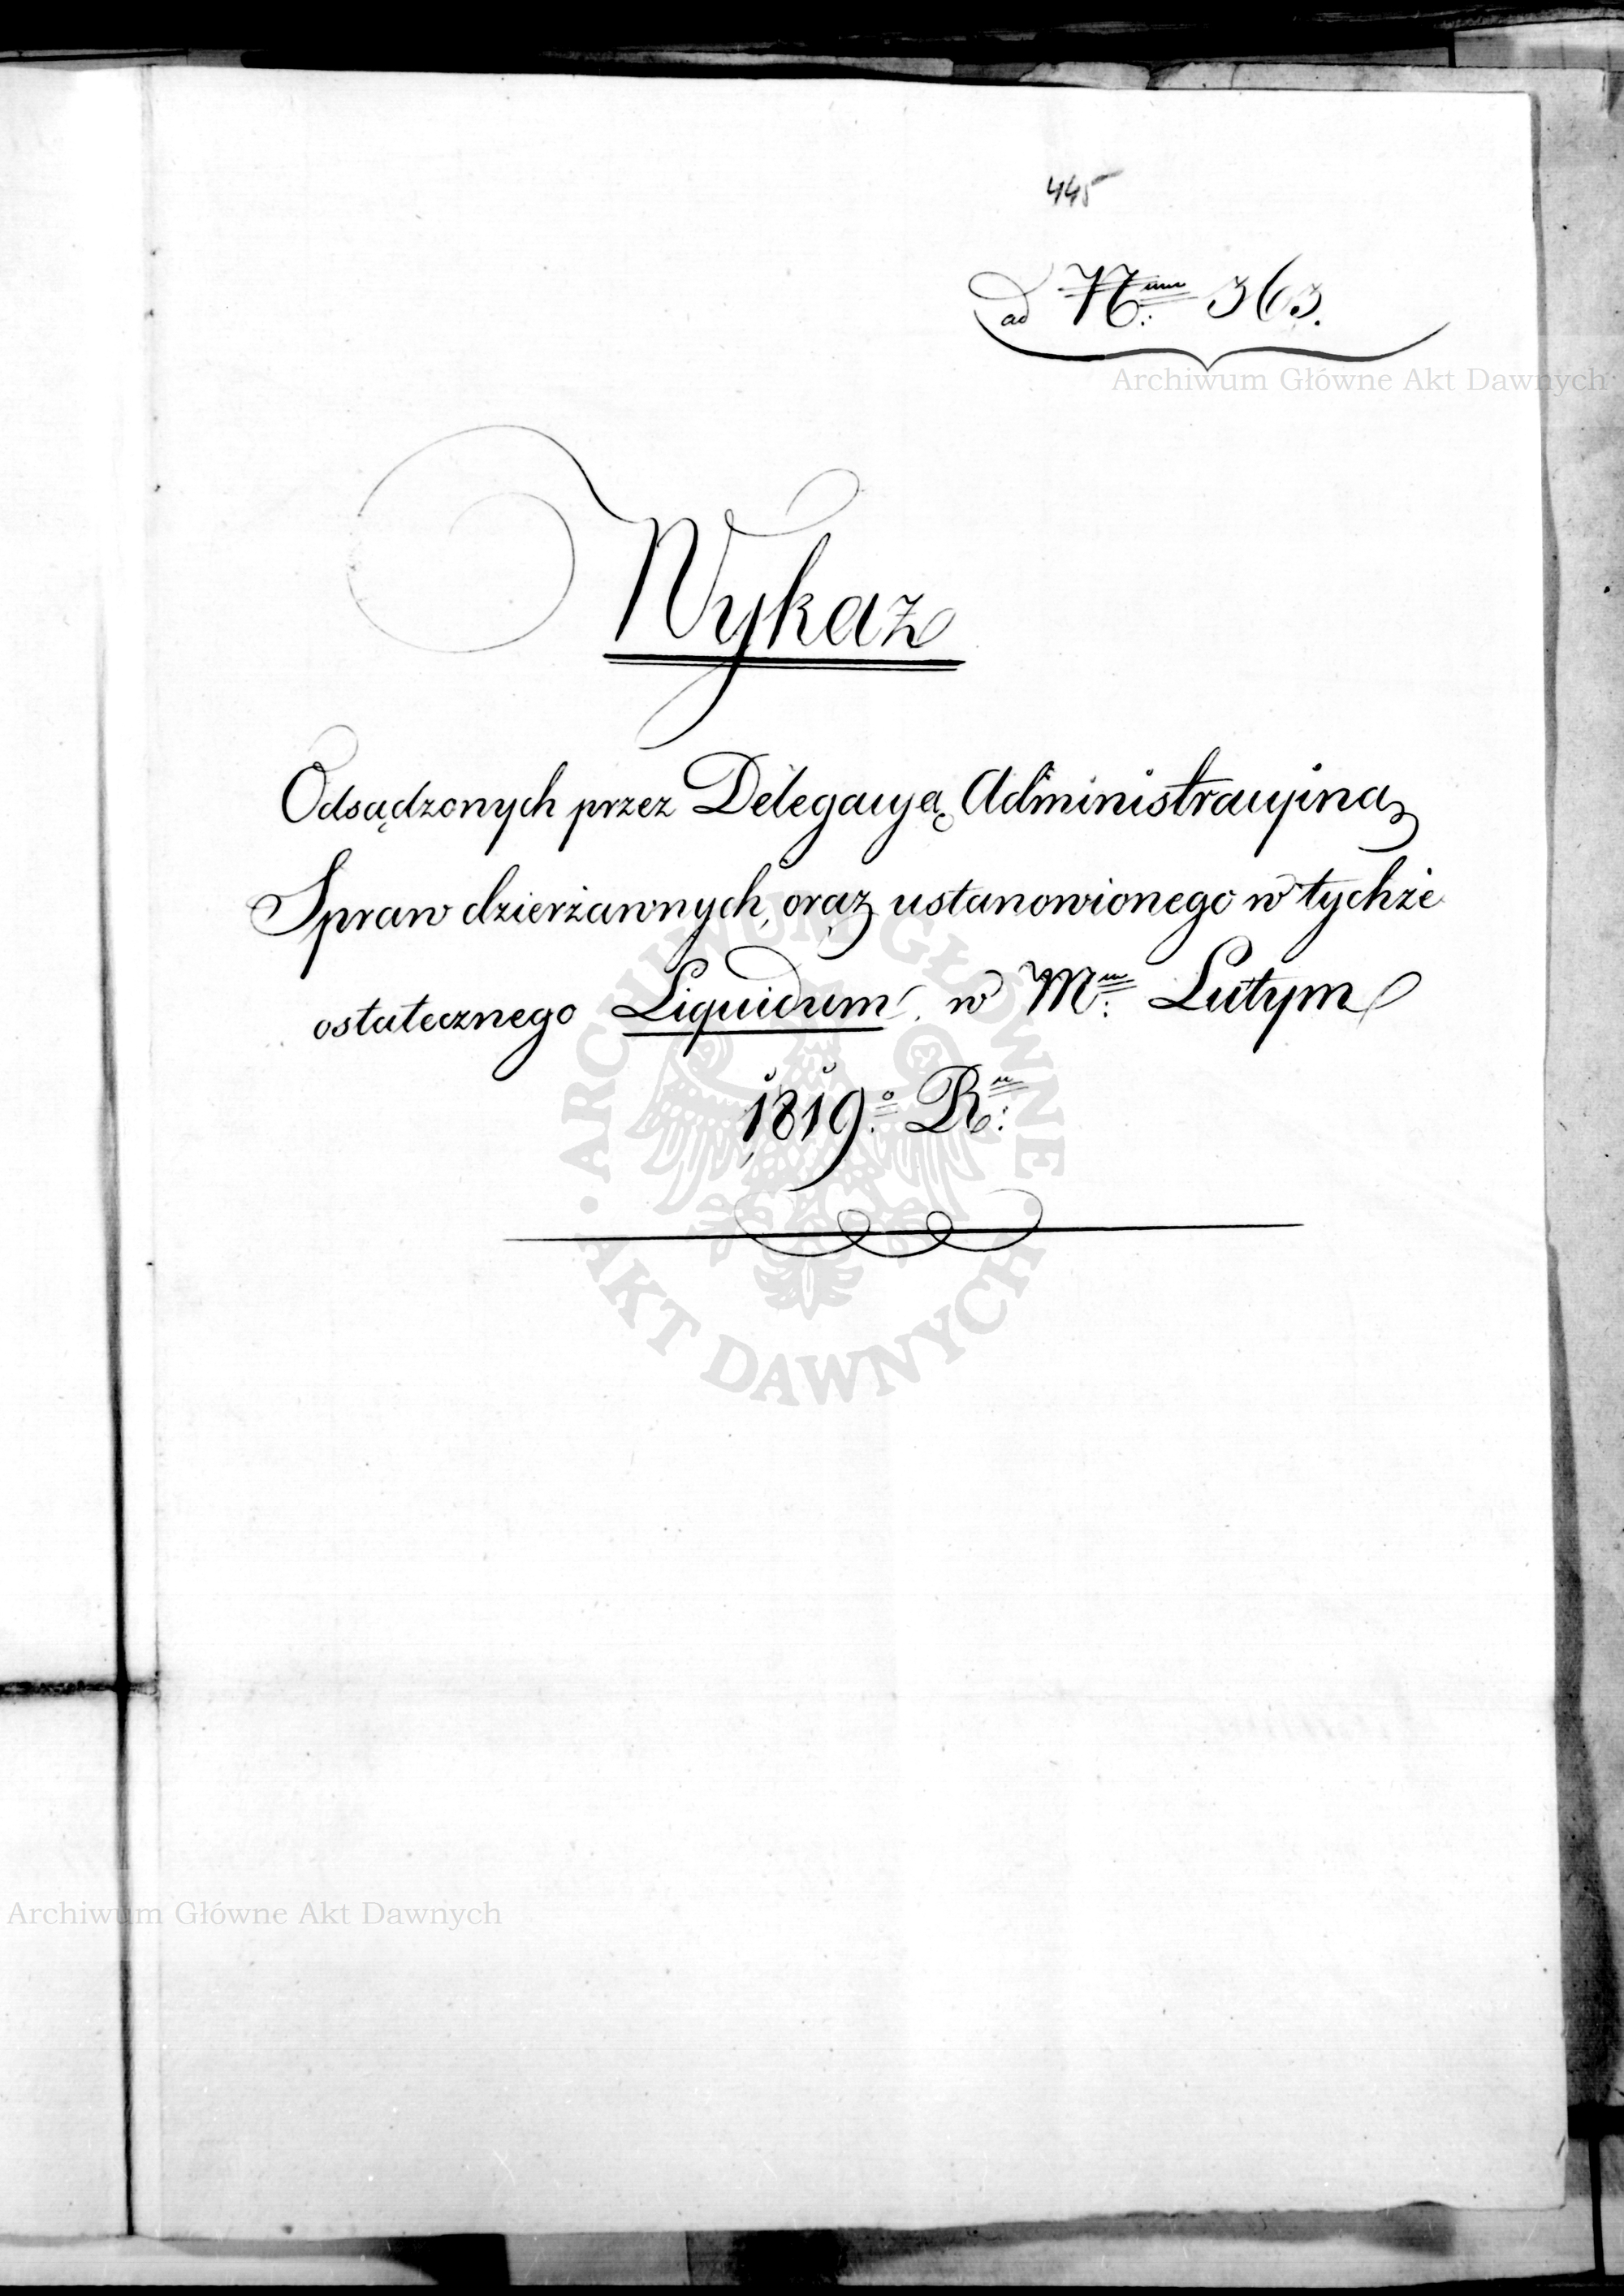 445
ad Num: 363.
Archiwum Główne Akt Dawnych
Wykaz
Odsądzonych przez Delegacyą Administracyiną
Spraw dzierżawnych, oraz ustanowionego w tychże
ostatecznego Liquidum w Mcu: Lutym
1819o: Ru:
ARCHIWUM GŁÓWNE
AKT DAWNYCH
Archiwum Główne Akt Dawnych